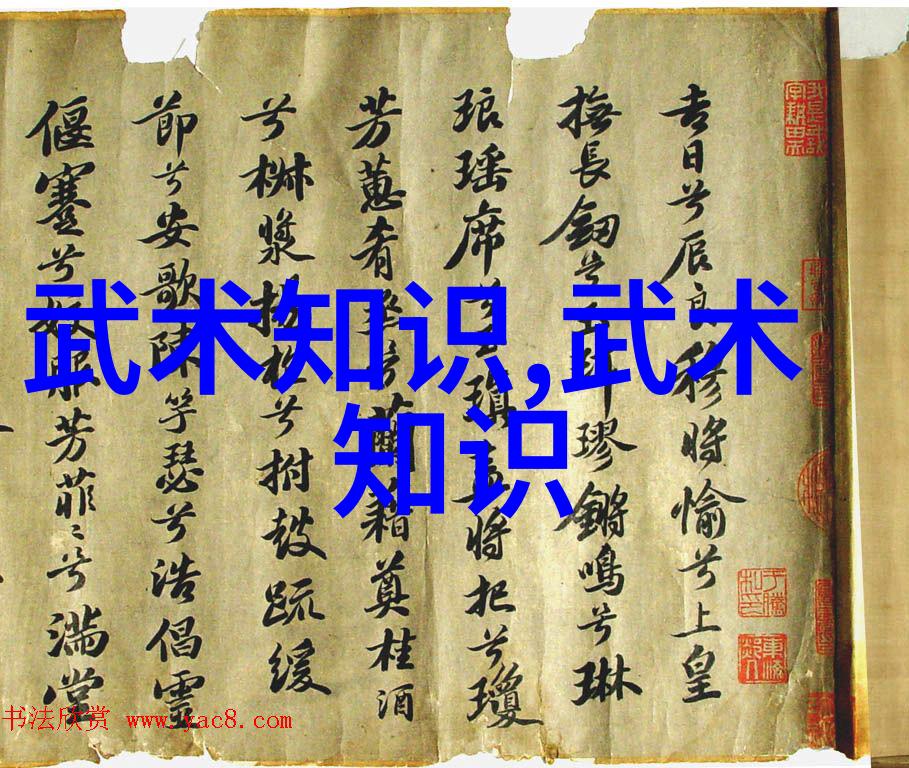 吉日兮辰良穆將愉兮上皇
撫長劒兮玉珥璆鏘鳴兮琳
琅瑶席兮玉瑱盍將把兮瓊
芳蕙肴烝兮蘭藉奠桂酒
兮椒漿揚枹兮拊鼓疏緩
節兮安歌陳竽瑟兮浩倡靈
偃蹇兮姣服芳菲〻兮滿堂
武术知识,武术
知识
书法欣赏 www.yac8.com